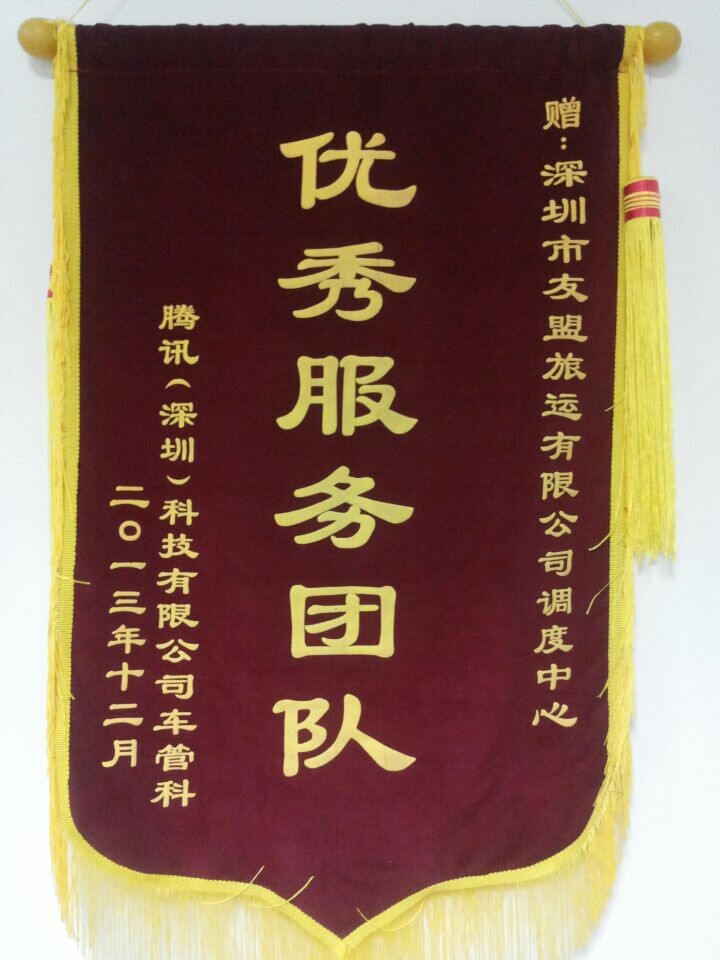 赠:深圳市友盟旅运有限公司调度中心
优秀服务团队
腾讯(深圳)科技有限公司车管科
二〇一三年十二月